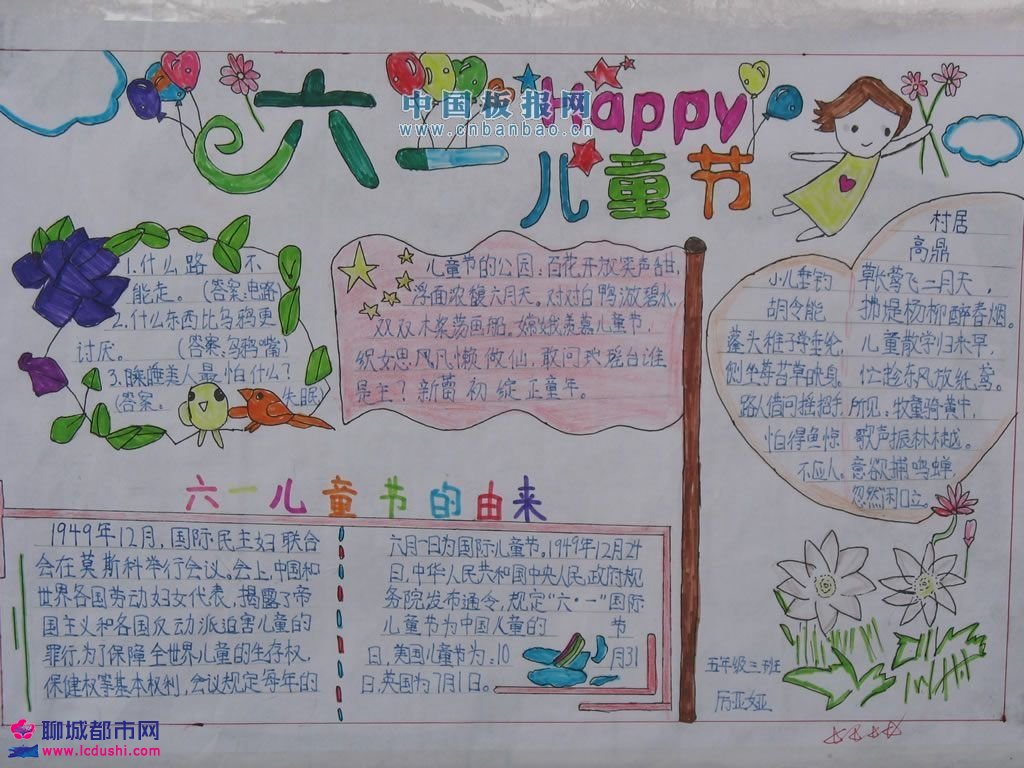 六一
Happy
儿童节
中国板报网
www.cnbanbao.cn
1.什么路 不
能走。(答案:电路)
2.什么东西比乌鸦更
讨厌。 (答案:乌鸦嘴)
3.睡美人最怕什么?
(答案: 失眠)
儿童节的公园:百花开放笑声甜,
浮面浓馥六月天。对对白鸭游碧水,
双双木桨荡画船。嫦娥羡慕儿童节,
织女思凡懒做仙。敢问瑰瑶台谁
是主?新蕾初绽正童年。
村居
高鼎
草长莺飞二月天,
拂堤杨柳醉春烟。
儿童散学归来早,
忙趁东风放纸鸢。
小儿垂钓
胡令能
蓬头稚子学垂纶,
侧坐莓苔草映身。
路人借问摇招手,
怕得鱼惊
不应人。
所见:牧童骑黄牛,
歌声振林樾。
意欲捕鸣蝉,
忽然闭口立。
六一儿童节的由来
1949年12月,国际民主妇联合
会在莫斯科举行会议。会上,中国和
世界各国劳动妇女代表,揭露了帝
国主义和各国反动派迫害儿童的
罪行,为了保障全世界儿童的生存权,
保健权等基本权利,会议规定每年的
六月一日为国际儿童节。1949年12月24
日,中华人民共和国中央人民政府规
务院发布通令,规定"六·一"国际
儿童节为中国儿童的 节
日,美国儿童节为:10 月31
日,英国为7月1日。
五年级三班
厉亚娅
聊城都市网
www.lcdushi.com